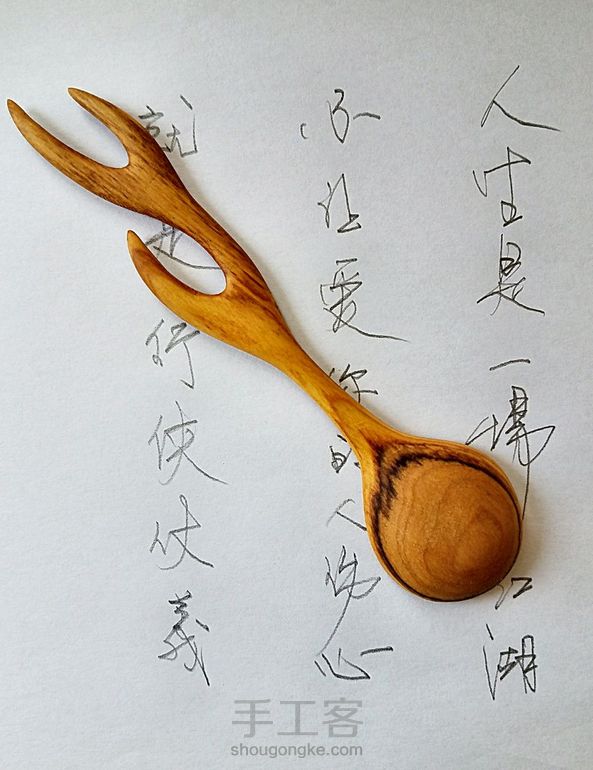 人生是一場江湖
不让愛你的人傷心
就是行俠仗義
手工客
shougongke.com